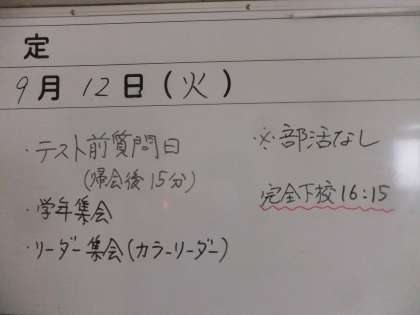 定
9月12日(火)
・テスト前質問日
(帰会後15分)
・学年集会
・リーダー集会(カラーリーダー)
※部活なし
完全下校16:15